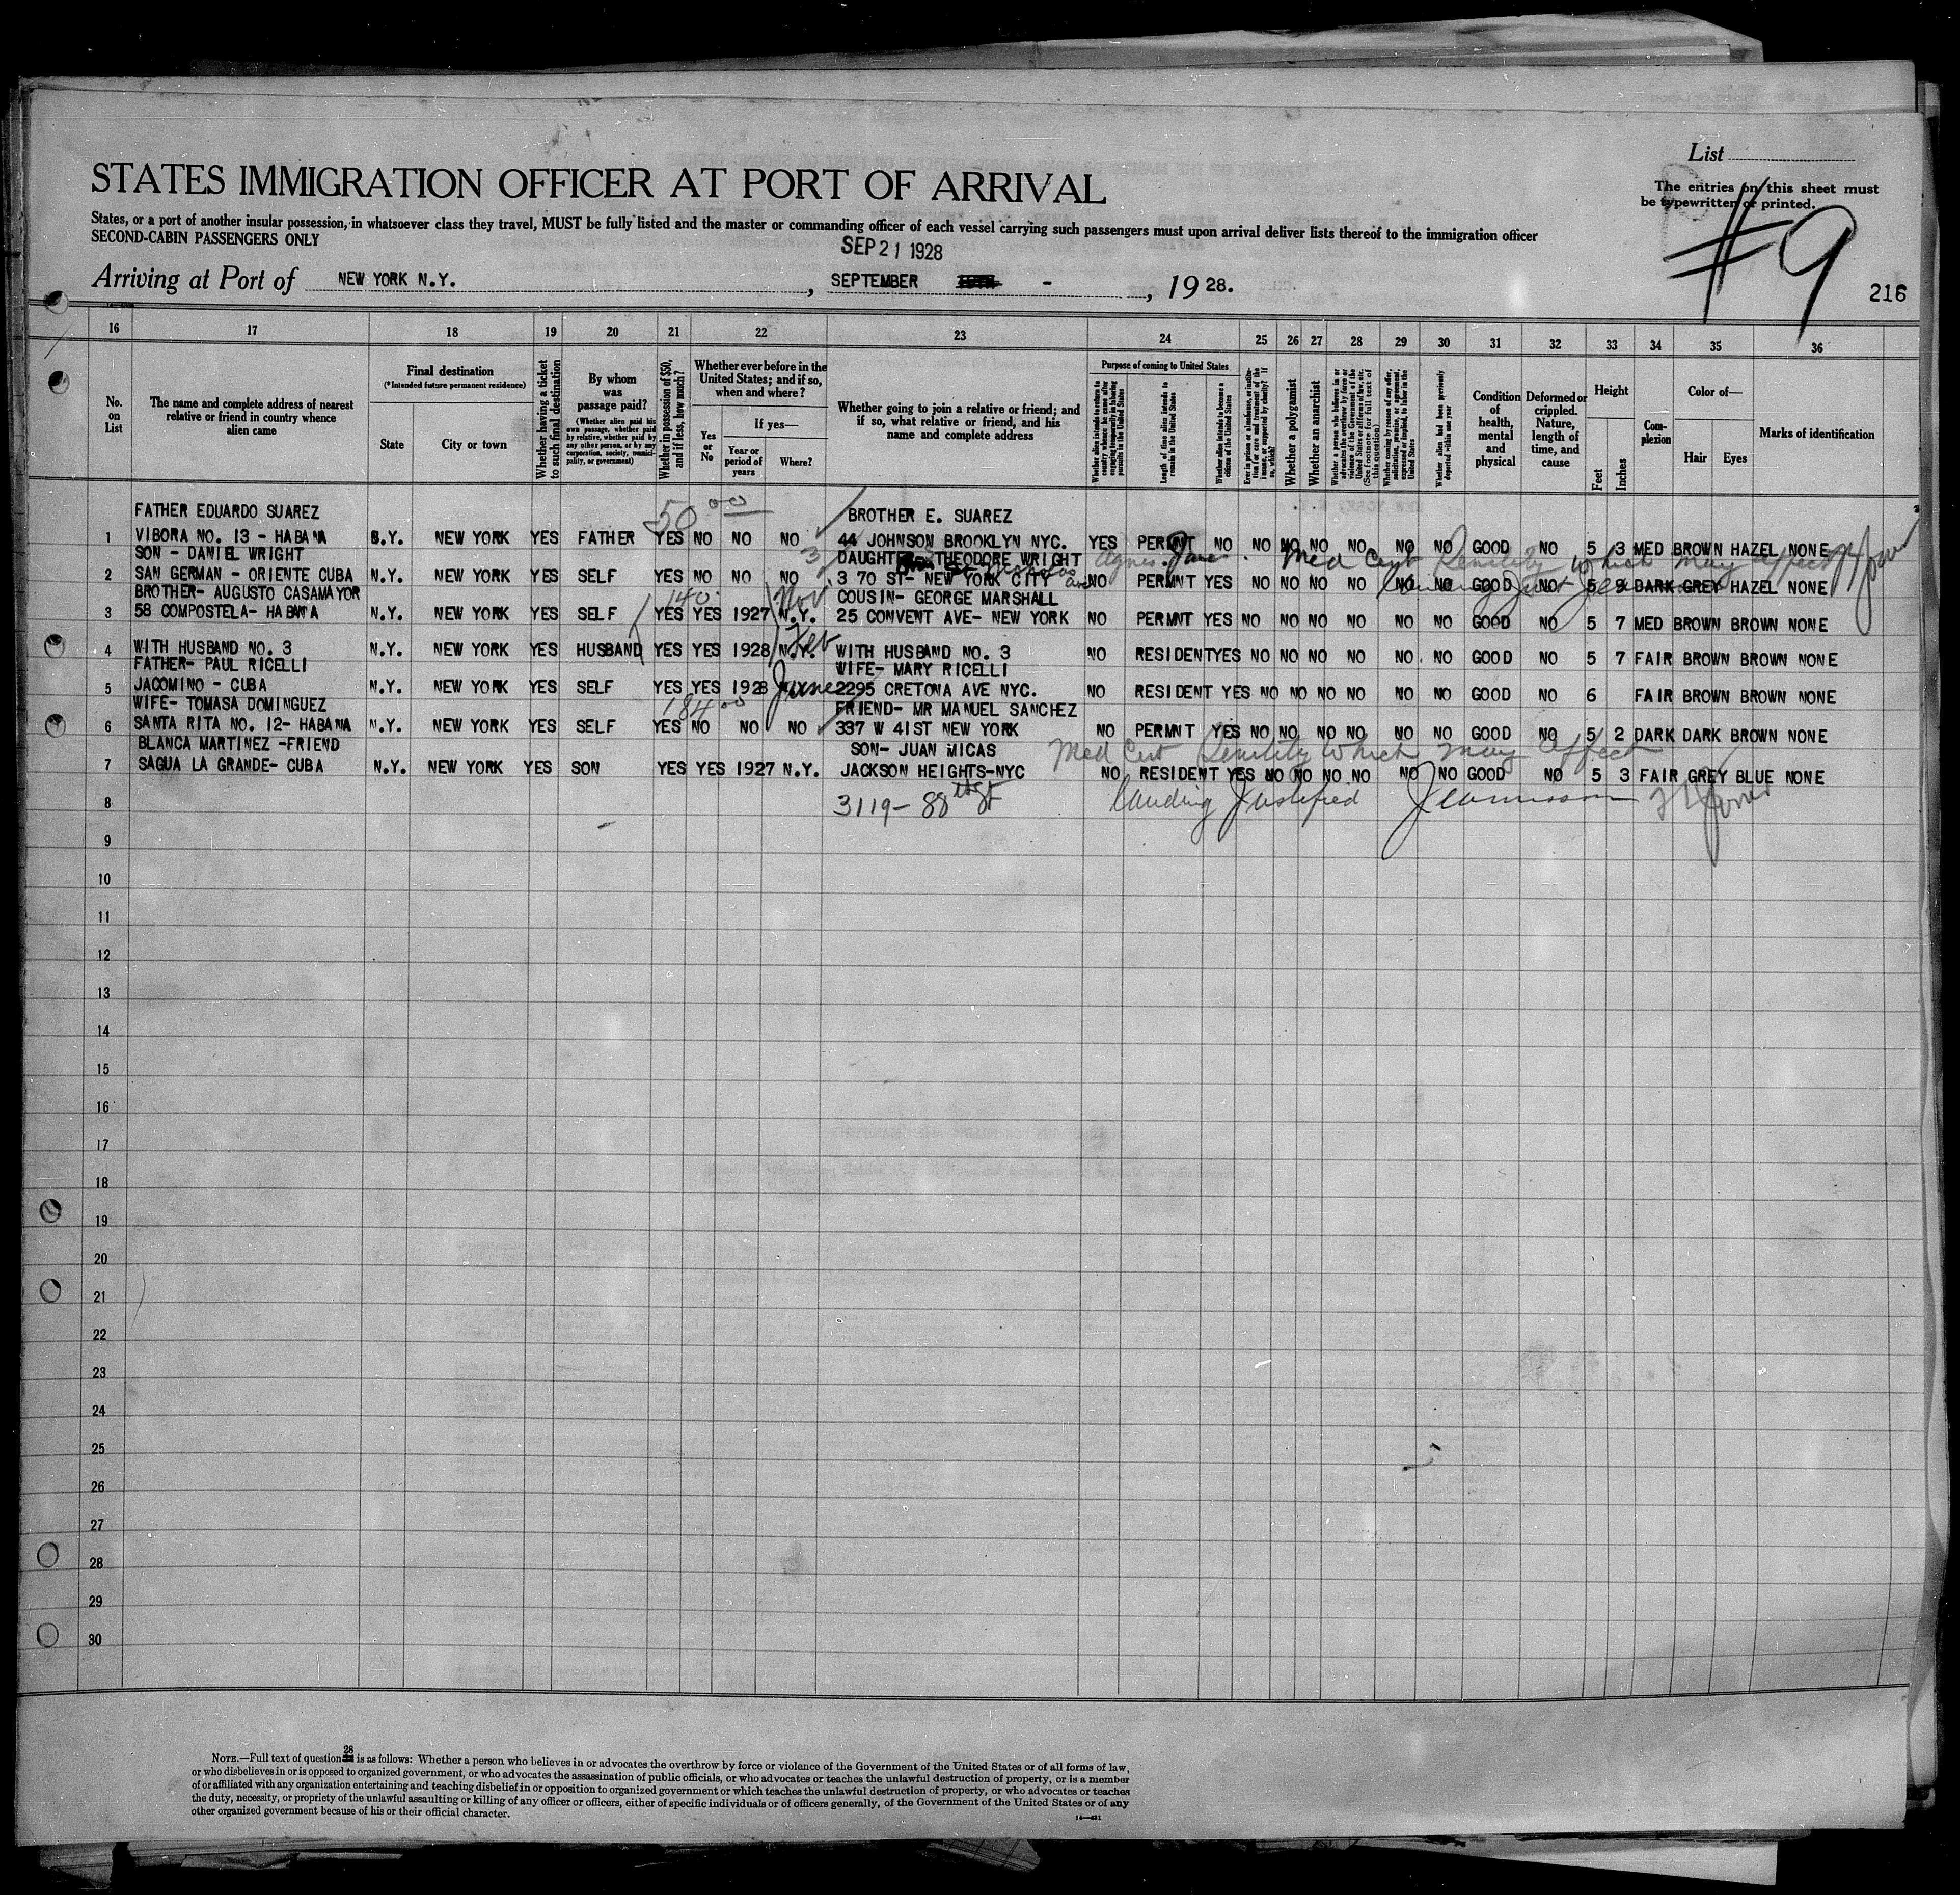 List
The entries on this sheet must
be typewritten or printed.
#9
216
STATES IMMIGRATION OFFICER AT PORT OF ARRIVAL
States, or a port of another insular possession, in whatsoever class they travel, MUST be fully listed and the master or commanding officer of each vessel carrying such passengers must upon arrival deliver lists thereof to the immigration officer
SECOND-CABIN PASSENGERS ONLY
SEP 21 1928
Arriving at Port of NEW YORK N.Y. , SEPTEMBER - , 19 28.
16 17 18 19 20 21 22 23 24 25 26 27 28 29 30 31 32 33 34 35 36
No. on List
The name and complete address of nearest relative or friend in country whence alien came
Final destination
(*Intended future permanent residence)
State
City or town
Whether having a ticket to such final destination
By whom was passage paid?
(Whether alien paid his own passage, whether paid by relative, whether paid by any other person, or by any corporation, society, municipality, or government)
Whether in possession of $50, and if less, how much?
Whether ever before in the United States; and if so, when and where?
Yes or No
If yes—
Year or period of years
Where?
Whether going to join a relative or friend; and if so, what relative or friend, and his name and complete address
Purpose of coming to United States
Length of time alien intends to remain in the United States
Whether alien intends to become a citizen of the United States
Whether a polygamist
Whether an anarchist
Whether alien had been previously deported within one year
Condition of health, mental and physical
Deformed or crippled. Nature, length of time, and cause
Height
Feet
Inches
Complexion
Color of—
Hair
Eyes
Marks of identification
50 00
FATHER EDUARDO SUAREZ BROTHER E. SUAREZ
1 VIBORA NO. 13 - HABANA N.Y. NEW YORK YES FATHER YES NO NO NO 44 JOHNSON BROOKLYN NYC. YES PERMNT NO NO NO NO NO NO NO GOOD NO 5 3 MED BROWN HAZEL NONE
SON - DANIEL WRIGHT DAUGHTER THEODORE WRIGHT Agnes Med Cert Senility which may affect
2 SAN GERMAN - ORIENTE CUBA N.Y. NEW YORK YES SELF YES NO NO NO 3 70 ST- NEW YORK CITY NO PERMNT YES NO NO NO NO NO NO GOOD NO 5 9 DARK GREY HAZEL NONE
BROTHER- AUGUSTO CASAMAYOR 140. Nov COUSIN- GEORGE MARSHALL
3 58 COMPOSTELA- HABANA N.Y. NEW YORK YES SELF YES YES 1927 N.Y. 25 CONVENT AVE- NEW YORK NO PERMNT YES NO NO NO NO NO NO GOOD NO 5 7 MED BROWN BROWN NONE
Feb
4 WITH HUSBAND NO. 3 N.Y. NEW YORK YES HUSBAND YES YES 1928 N.Y. WITH HUSBAND NO. 3 NO RESIDENT YES NO NO NO NO NO NO GOOD NO 5 7 FAIR BROWN BROWN NONE
FATHER- PAUL RICELLI WIFE- MARY RICELLI
5 JACOMINO - CUBA N.Y. NEW YORK YES SELF YES YES 1928 June 2295 CRETONA AVE NYC. NO RESIDENT YES NO NO NO NO NO NO GOOD NO 6 FAIR BROWN BROWN NONE
WIFE- TOMASA DOMINGUEZ 184 00 FRIEND- MR MANUEL SANCHEZ
6 SANTA RITA NO. 12- HABANA N.Y. NEW YORK YES SELF YES NO NO NO 337 W 41ST NEW YORK NO PERMNT YES NO NO NO NO NO NO GOOD NO 5 2 DARK DARK BROWN NONE
BLANCA MARTINEZ -FRIEND SON- JUAN MICAS Med Cert Senility which may affect
7 SAGUA LA GRANDE- CUBA N.Y. NEW YORK YES SON YES YES 1927 N.Y. JACKSON HEIGHTS-NYC NO RESIDENT YES NO NO NO NO NO NO GOOD NO 5 3 FAIR GREY BLUE NONE
8 3119 - 88th St Landing Justified
9
10
11
12
13
14
15
16
17
18
19
20
21
22
23
24
25
26
27
28
29
30
28
NOTE.—Full text of question is as follows: Whether a person who believes in or advocates the overthrow by force or violence of the Government of the United States or of all forms of law,
or who disbelieves in or is opposed to organized government, or who advocates the assassination of public officials, or who advocates or teaches the unlawful destruction of property, or is a member
of or affiliated with any organization entertaining and teaching disbelief in or opposition to organized government or which teaches the unlawful destruction of property, or who advocates or teaches
the duty, necessity, or propriety of the unlawful assaulting or killing of any officer or officers, either of specific individuals or of officers generally, of the Government of the United States or of any
other organized government because of his or their official character.